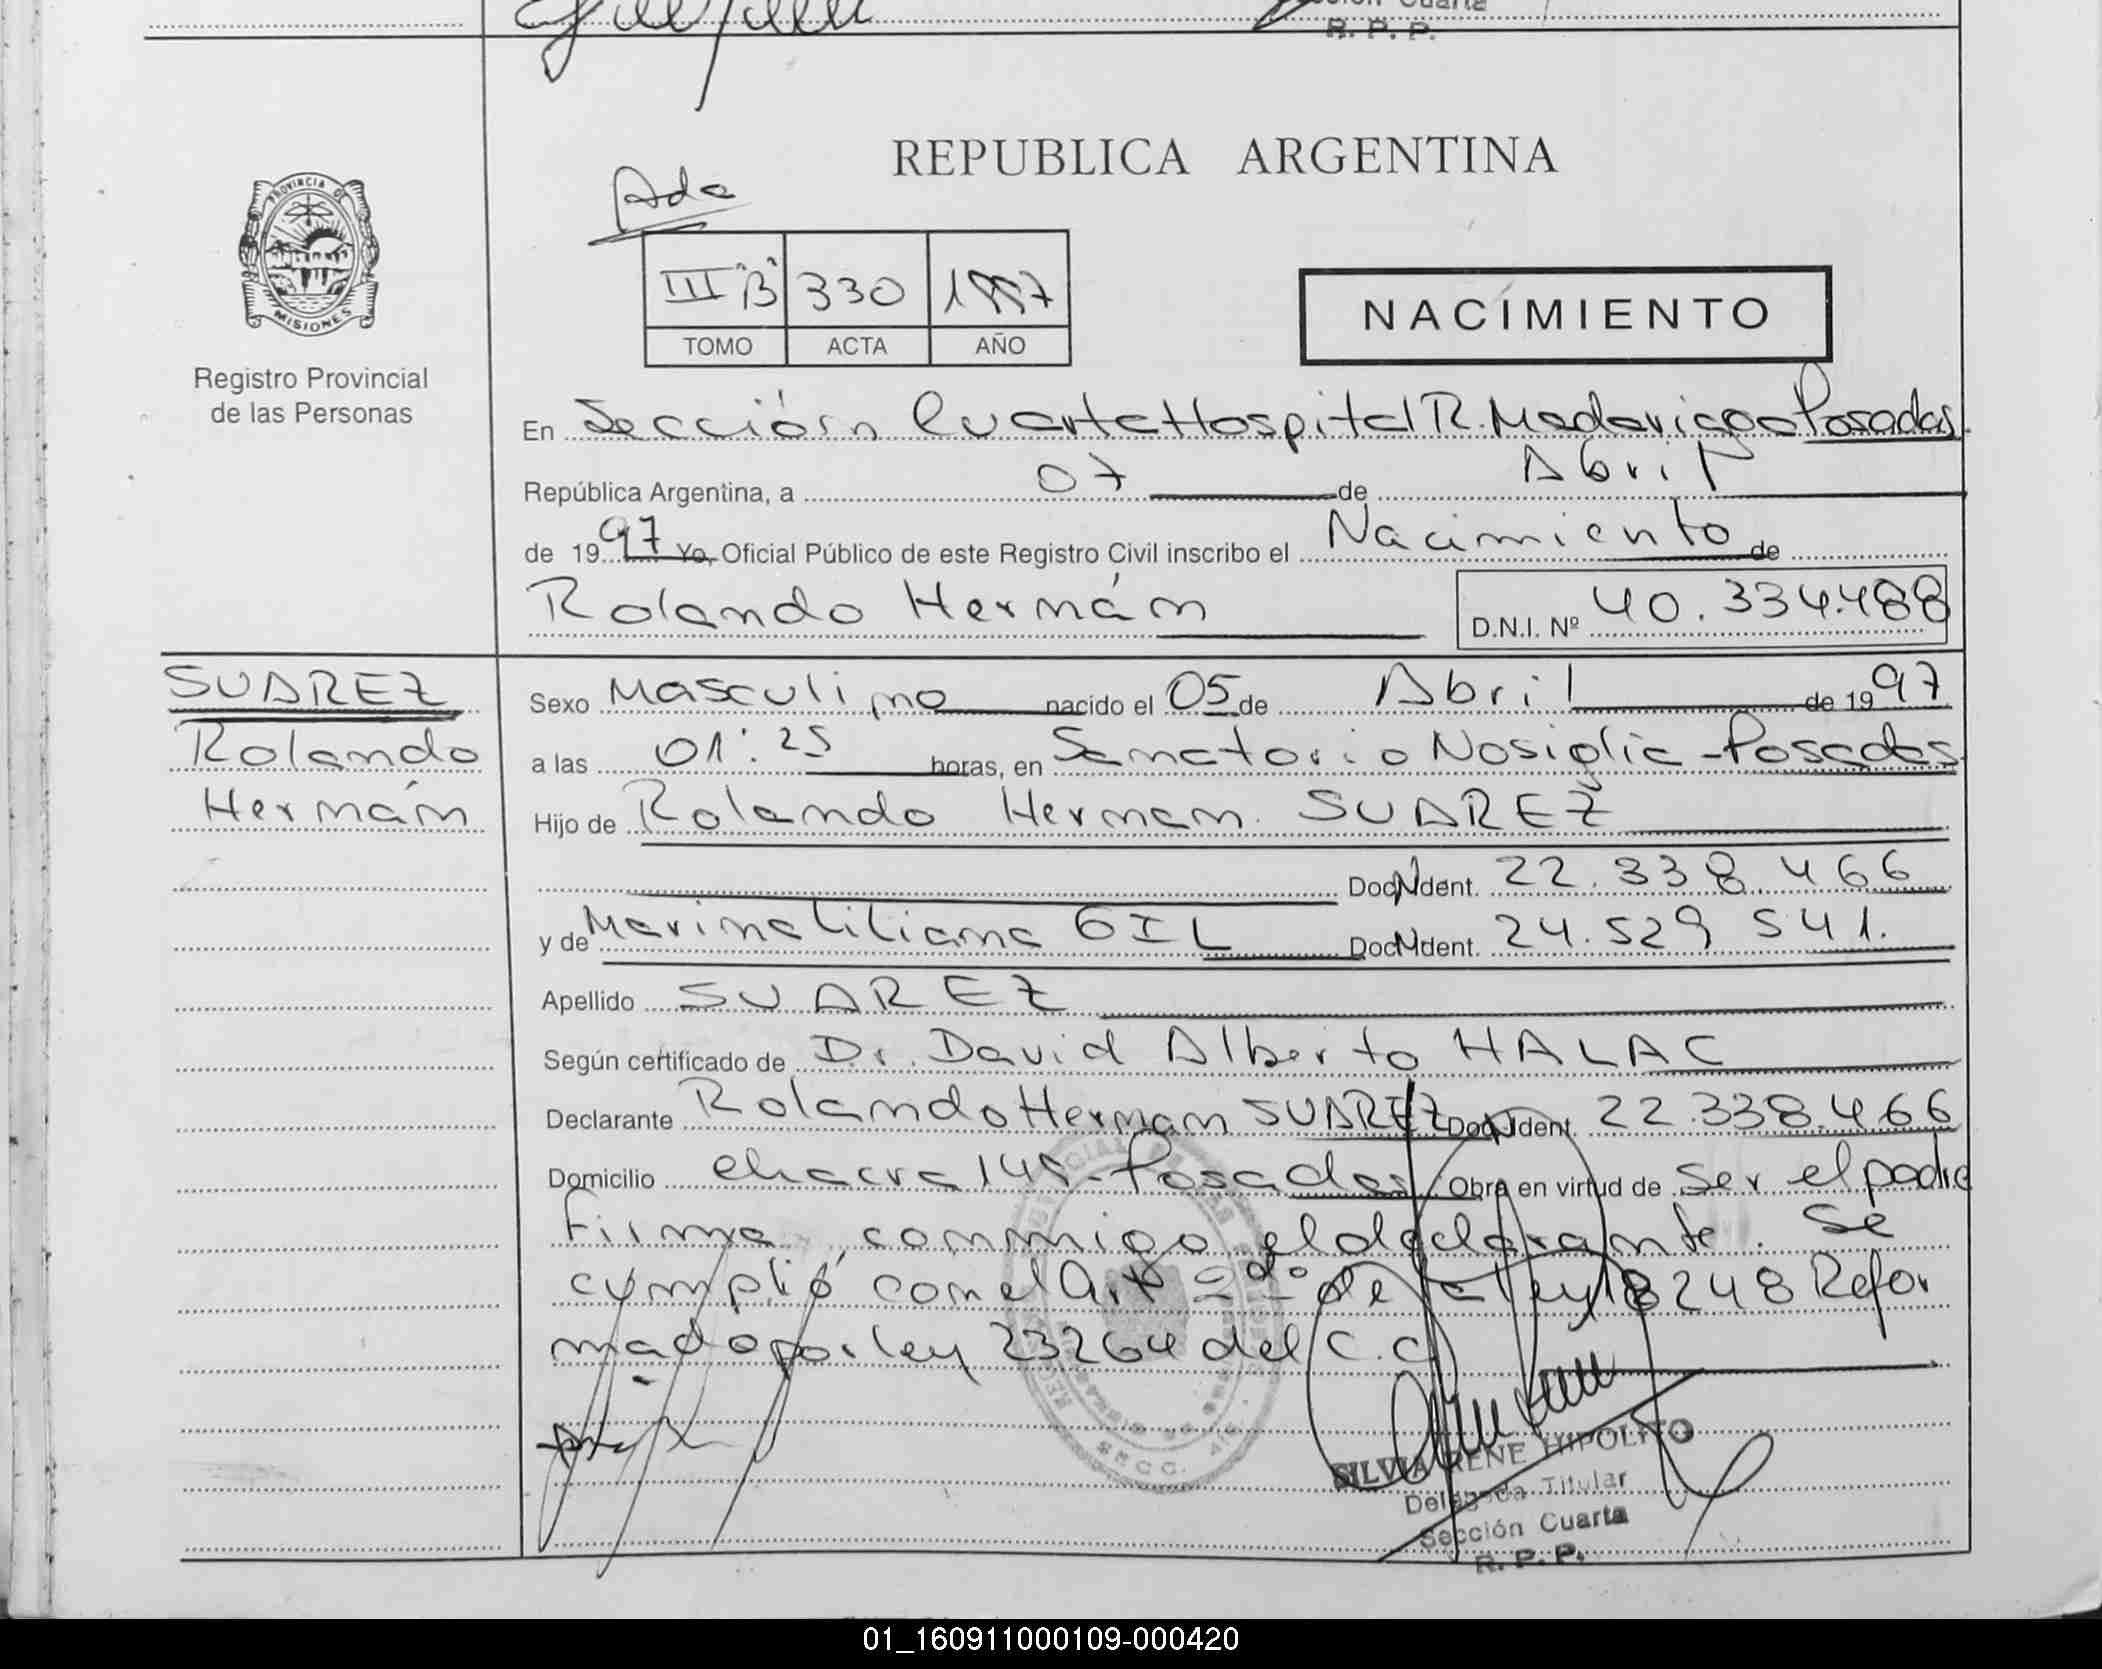 R. P. P.
REPUBLICA ARGENTINA
PROVINCIA DE
MISIONES
Registro Provincial
de las Personas
III "B" 330 1997
TOMO ACTA AÑO
NACIMIENTO
En Sección Cuarta Hospital R. Madariaga Posadas
República Argentina, a 07 de Abril
de 1997 Yo, Oficial Público de este Registro Civil inscribo el Nacimiento de
Rolando Hermán D.N.I. Nº 40.334.488
SUAREZ
Rolando
Hermán
Sexo Masculino nacido el 05 de Abril de 1997
a las 01:25 horas, en Sanatorio Nosiglia - Posadas
Hijo de Rolando Herman SUAREZ
Doc. Ident. 22.338.466
y de Marina Liliana GIL Doc. Ident. 24.529 541.
Apellido SUAREZ
Según certificado de Dr. David Alberto HALAC
Declarante Rolando Herman SUAREZ Doc. Ident. 22.338.466
Domicilio chacra 145 - Posadas Obra en virtud de ser el padre
Firma conmigo el declarante. Se
cumplió con el Art 2do de la ley 18248 Refor
mado por ley 23264 del C.C.
SECC. 4ta.
SILVIA RENE HIPOLITO
Delegada Titular
Sección Cuarta
R. P. P.
01_160911000109-000420